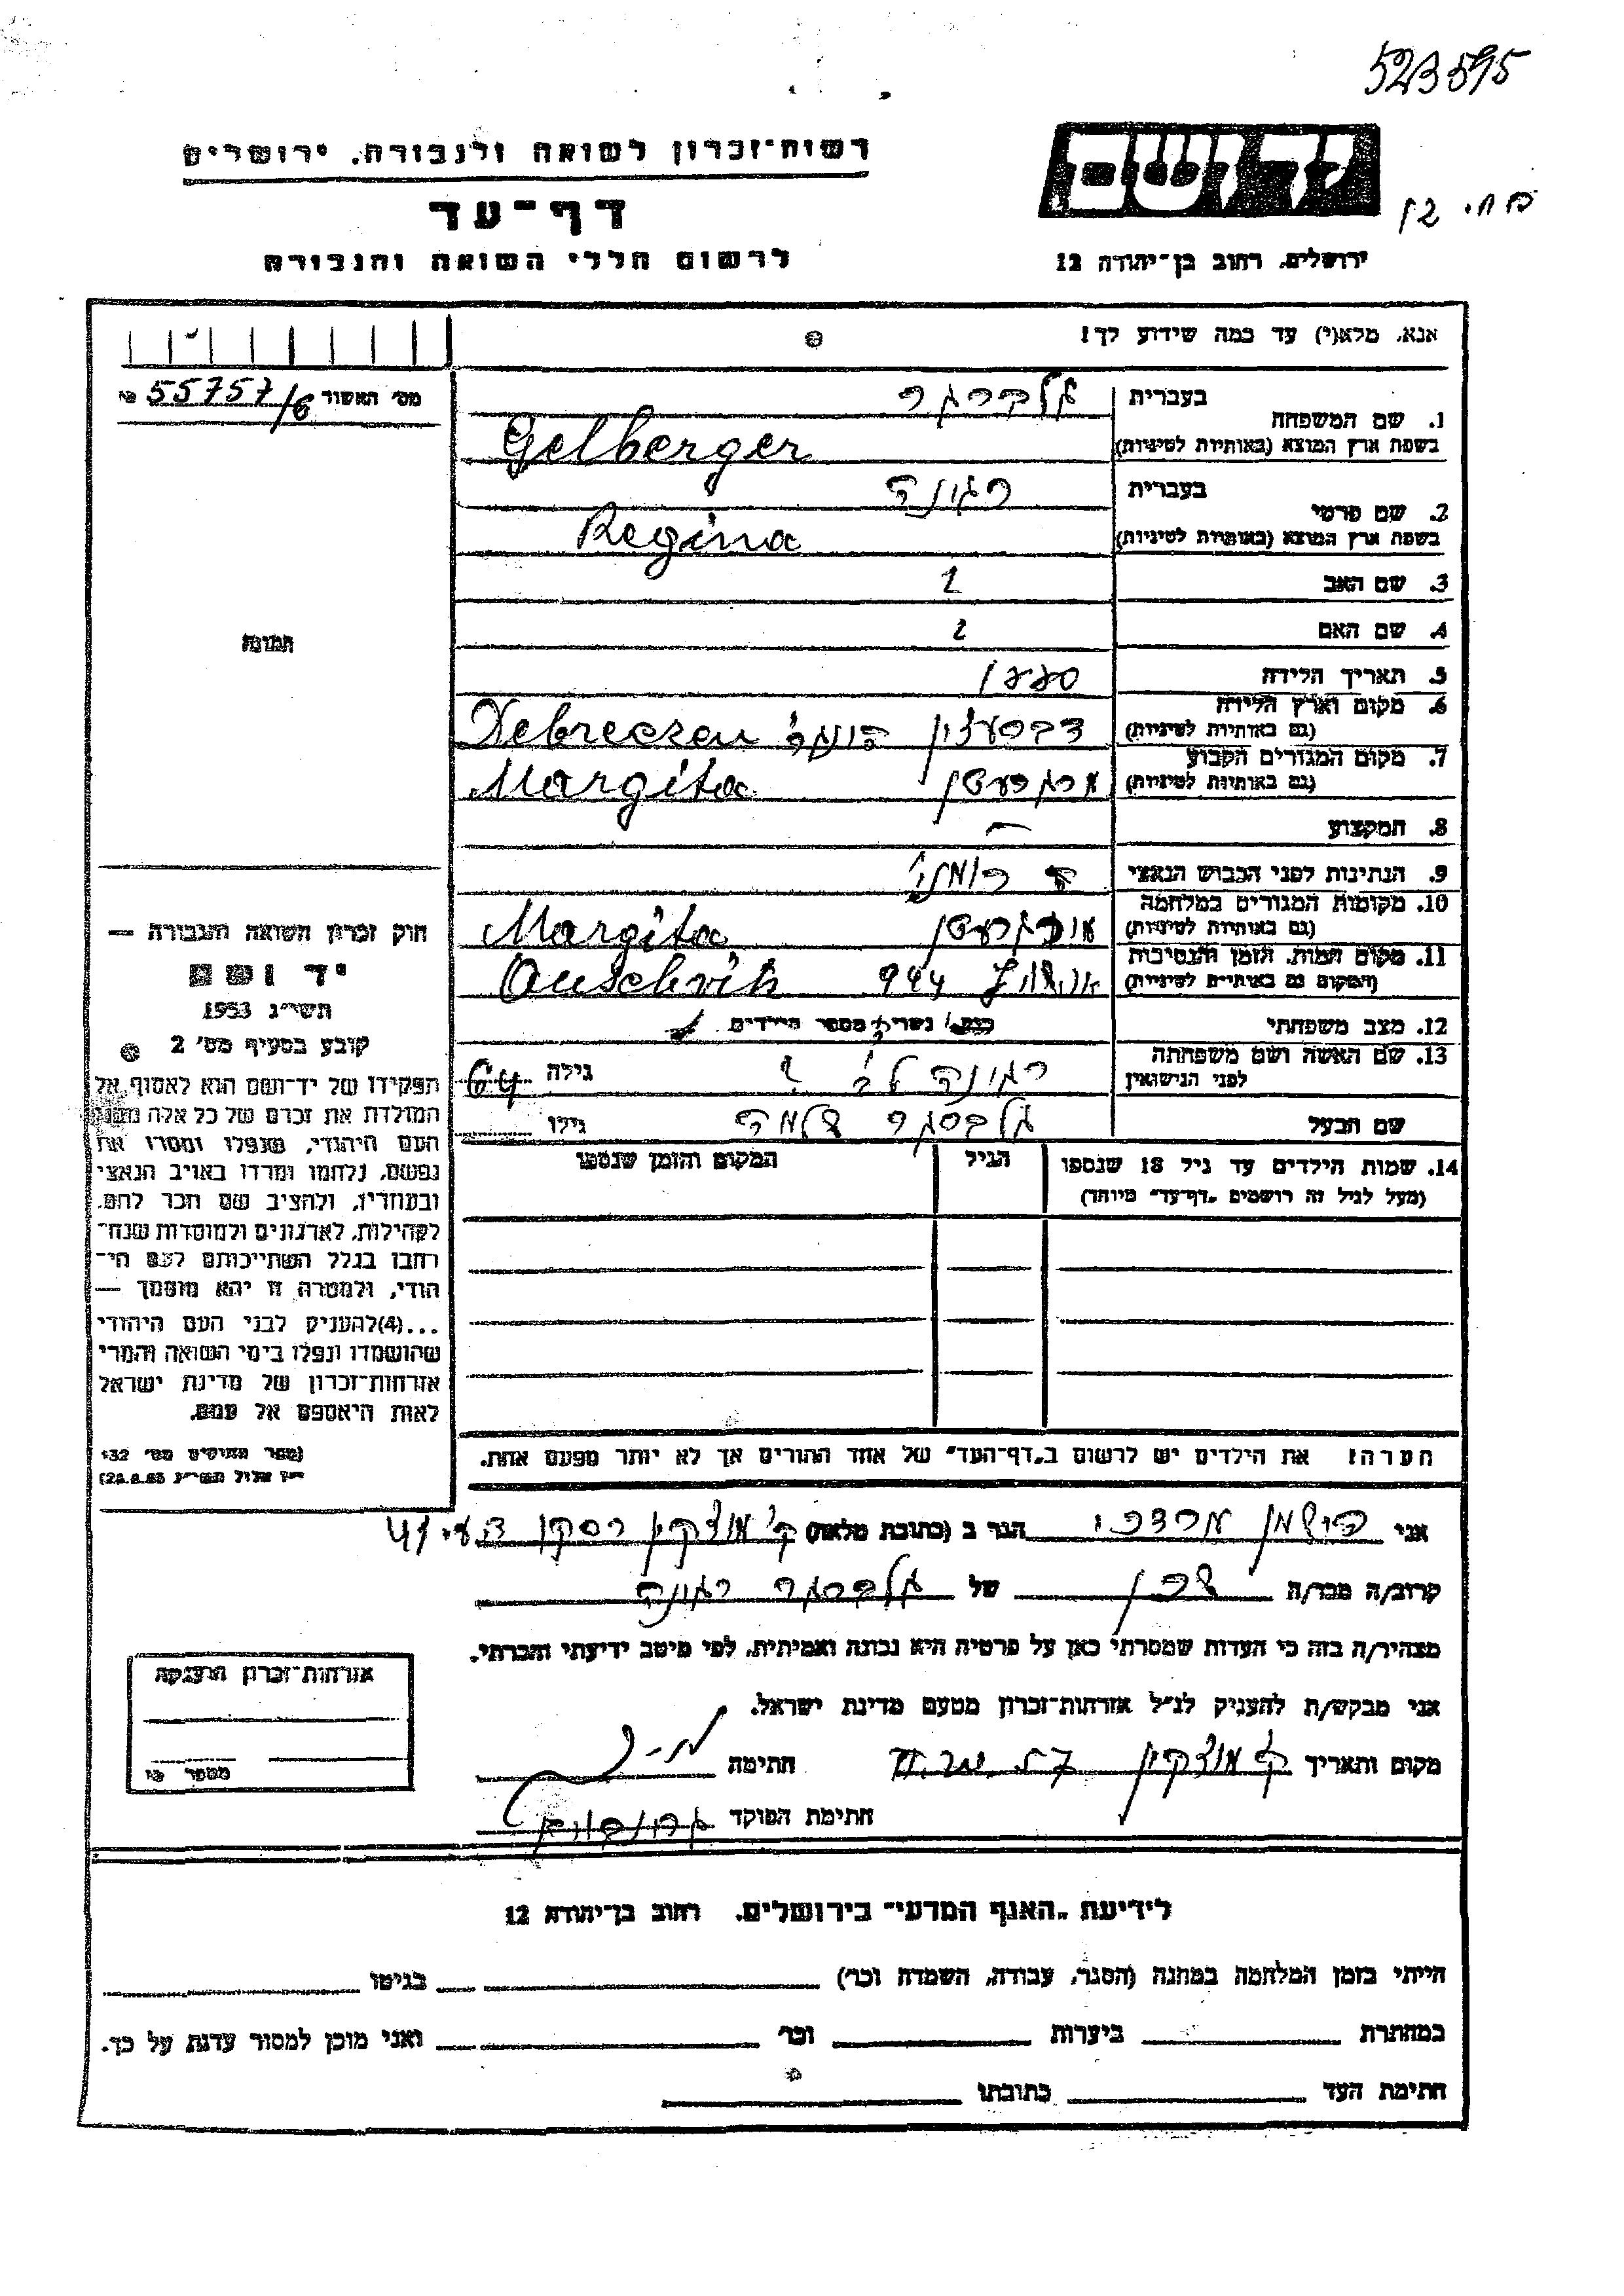 523595
רשות-זכרון לשואה ולגבורה, ירושלים
יד ושם
דף-עד
לרשום חללי השואה והגבורה
ירושלים, רחוב בן-יהודה 12
אנא, מלא(י) עד כמה שידוע לך!
מס' האשור 55757/6
1. שם המשפחה
בעברית גלברגר
בשפת ארץ המוצא (באותיות לטיניות) Gelberger
2. שם פרטי
בעברית רגינה
בשפת ארץ המוצא (באותיות לטיניות) Regina
3. שם האב
4. שם האם
5. תאריך הלידה 1880
6. מקום וארץ הלידה (גם באותיות לטיניות) Debreczen
7. מקום המגורים הקבוע (גם באותיות לטיניות) Margita
8. המקצוע —
9. הנתינות לפני הכבוש הנאצי
10. מקומות המגורים במלחמה (גם באותיות לטיניות) Margita
11. מקום המות, הזמן והנסיבות (המקום גם באותיות לטיניות) 944 Auschvitz
12. מצב משפחתי נשוי/ה מספר הילדים
13. שם האשה ושם משפחתה לפני הנישואין רגינה לב ? גילה 64
שם הבעל גלברגר שלמה גילו
14. שמות הילדים עד גיל 18 שנספו (מעל לגיל זה רושמים "דף-עד" מיוחד) הגיל המקום והזמן שנספו
הערה! את הילדים יש לרשום ב"דף-העד" של אחד ההורים אך לא יותר מפעם אחת.
תמונה
חוק זכרון השואה והגבורה —
יד ושם
תשי"ג 1953
קובע בסעיף מס' 2
תפקידו של יד-ושם הוא לאסוף אל
המולדת את זכרם של כל אלה מבני
העם היהודי, שנפלו ומסרו את
נפשם, נלחמו ומרדו באויב הנאצי
ובעוזריו, ולהציב שם וזכר להם,
לקהילות, לארגונים ולמוסדות שנח-
רבו בגלל השתייכותם לעם הי-
הודי, ולמטרה זו יהא מוסמך —
...(4)להעניק לבני העם היהודי
שהושמדו ונפלו בימי השואה והמרי
אזרחות-זכרון של מדינת ישראל
לאות היאספם אל עמם.
(ספר החוקים מס' 132
י"ז אלול תשי"ג 28.8.53)
אני מרדכי הגר ב (כתובת מלאה) ק' מוצקין
קרוב/ה מכר/ה שכן של גלברגר רגינה
מצהיר/ה בזה כי העדות שמסרתי כאן על פרטיה היא נכונה ואמיתית, לפי מיטב ידיעתי והכרתי.
אני מבקש/ת להעניק לנ"ל אזרחות-זכרון מטעם מדינת ישראל.
מקום ותאריך ק' מוצקין חתימה
חתימת הפוקד
אזרחות-זכרון הוענקה
מספר
לידיעת "האגף המדעי" בירושלים, רחוב בן-יהודה 12
הייתי בזמן המלחמה במחנה (הסגר, עבודה, השמדה וכו') בגיטו
במחתרת ביערות וכו' ואני מוכן למסור עדות על כך.
חתימת העד כתובתו